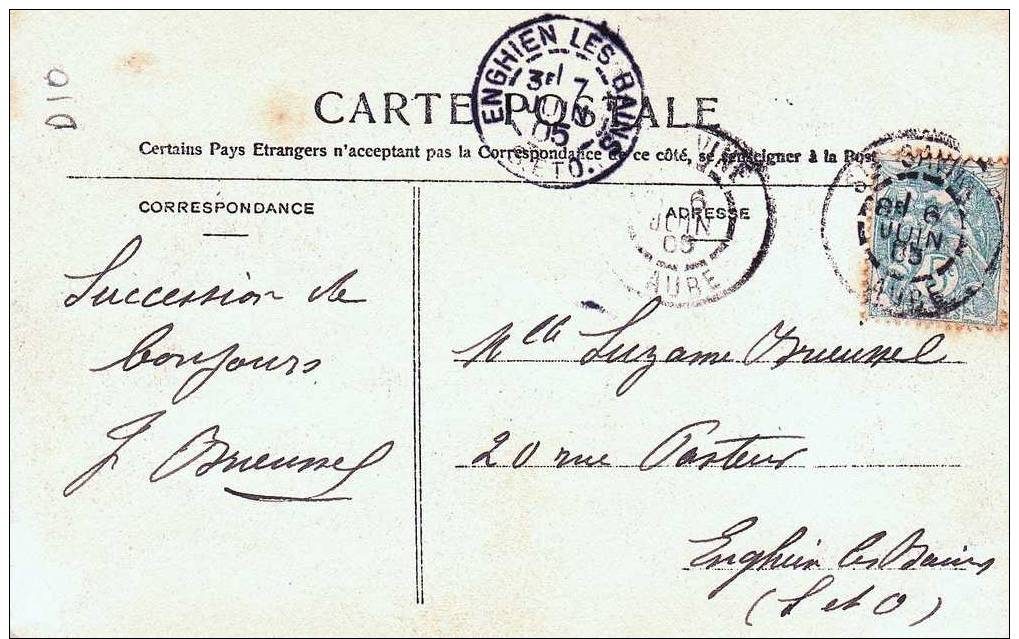 D10
ENGHIEN LES BAINS
3E 7
JUIN
05
ET O.
CARTE POSTALE
Certains Pays Etrangers n'acceptant pas la Correspondance de ce côté, se renseigner à la Post
CORRESPONDANCE
ADRESSE
6
JUIN
AUBE
SAVINE
8E 6
JUIN
05
AUBE
Succession de
bonjours
J Brieussel
Mlle Suzanne Brieussel
20 rue Pasteur
Enghein les Bains
(S et O)